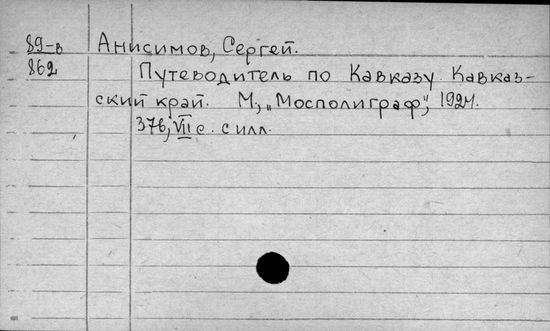 89-в Анисимов, Сергей.
862 Путеводитель по Кавказу. Кавказ-
ский край. М., „Мосполиграф", 1924.
376, VII с. с илл.